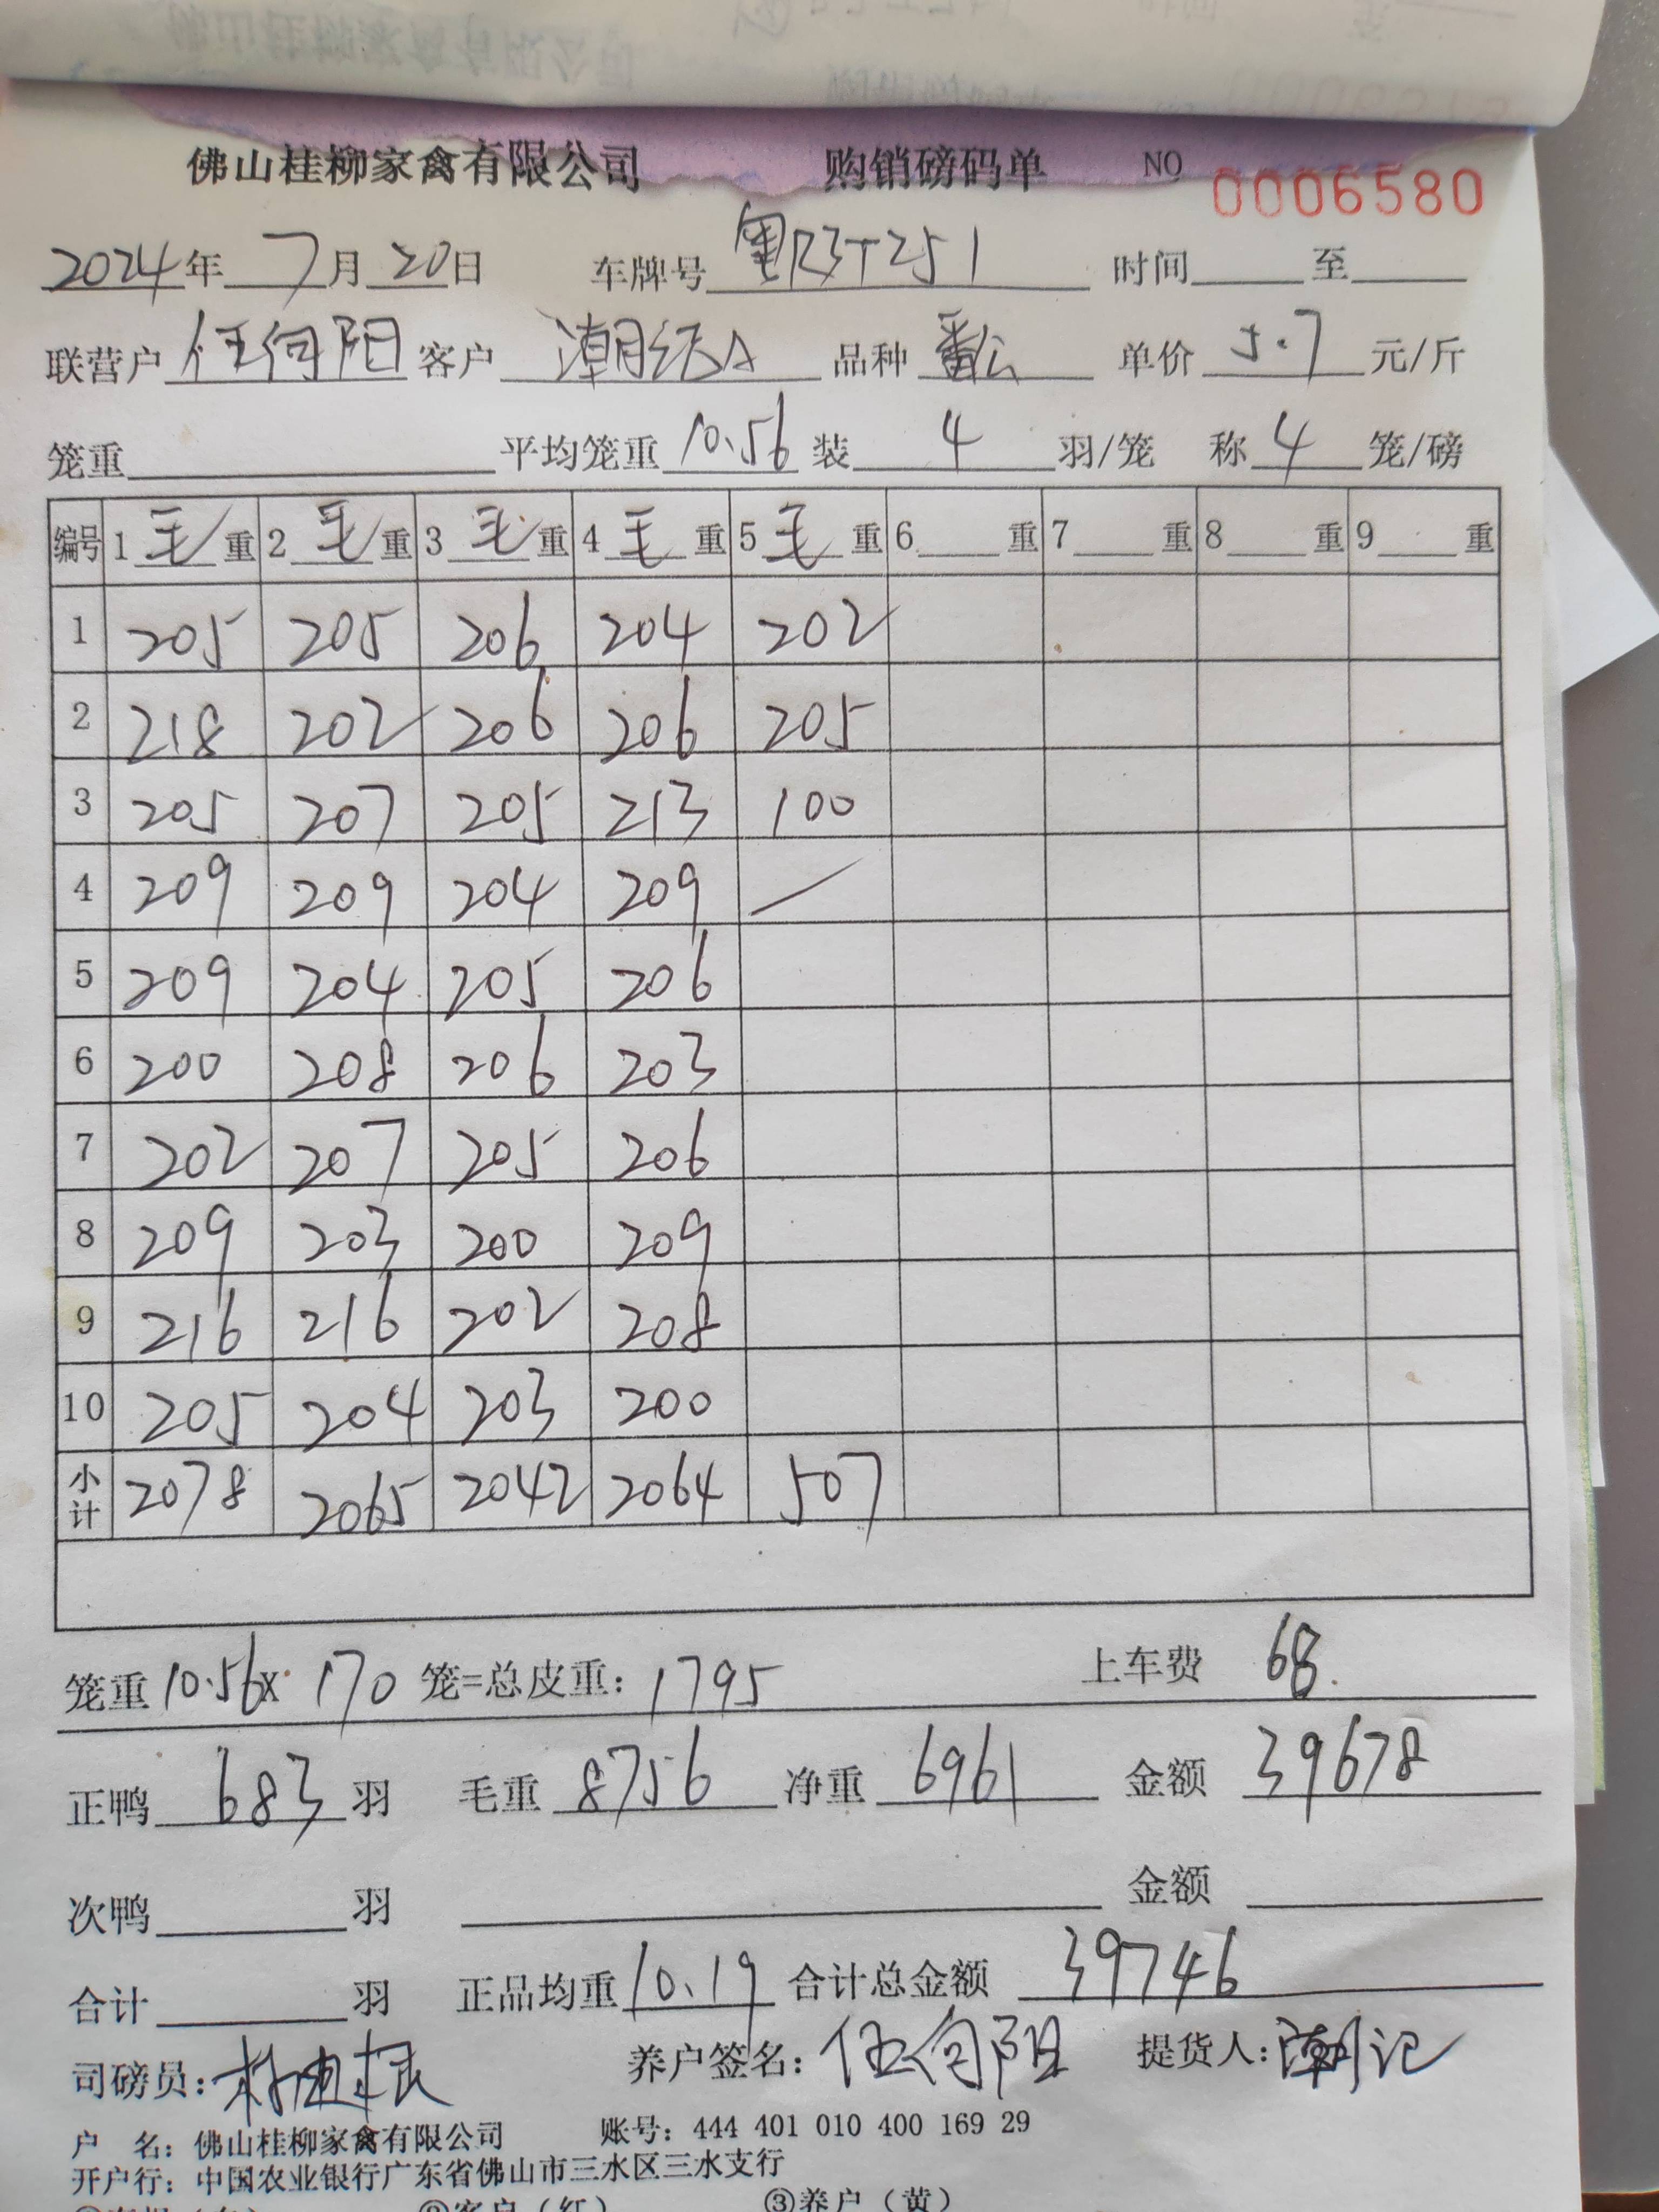 佛山桂柳家禽有限公司 购销磅码单 NO 0006580
2024年 7月 20日 车牌号 粤R3T251 时间 至
联营户 伍向阳 客户 潮记A 品种 番公 单价 5.7 元/斤
笼重 平均笼重 10.56 装 4 羽/笼 称 4 笼/磅
编号 1 毛 重 2 毛 重 3 毛 重 4 毛 重 5 毛 重 6 重 7 重 8 重 9 重
1 205 205 206 204 202
2 218 202 206 206 205
3 205 207 205 213 100
4 209 209 204 209 /
5 209 204 205 206
6 200 208 206 203
7 202 207 205 206
8 209 203 200 209
9 216 216 202 208
10 205 204 203 200
小计 2078 2065 2042 2064 507
笼重 10.56 x 170 笼=总皮重: 1795 上车费 68.
正鸭 683 羽 毛重 8756 净重 6961 金额 39678
次鸭 羽 金额
合计 羽 正品均重 10.19 合计总金额 39746
司磅员: 养户签名: 伍向阳 提货人: 潮记
户 名: 佛山桂柳家禽有限公司 账号: 444 401 010 400 169 29
开户行: 中国农业银行广东省佛山市三水区三水支行
②客户（红） ③养户（黄）